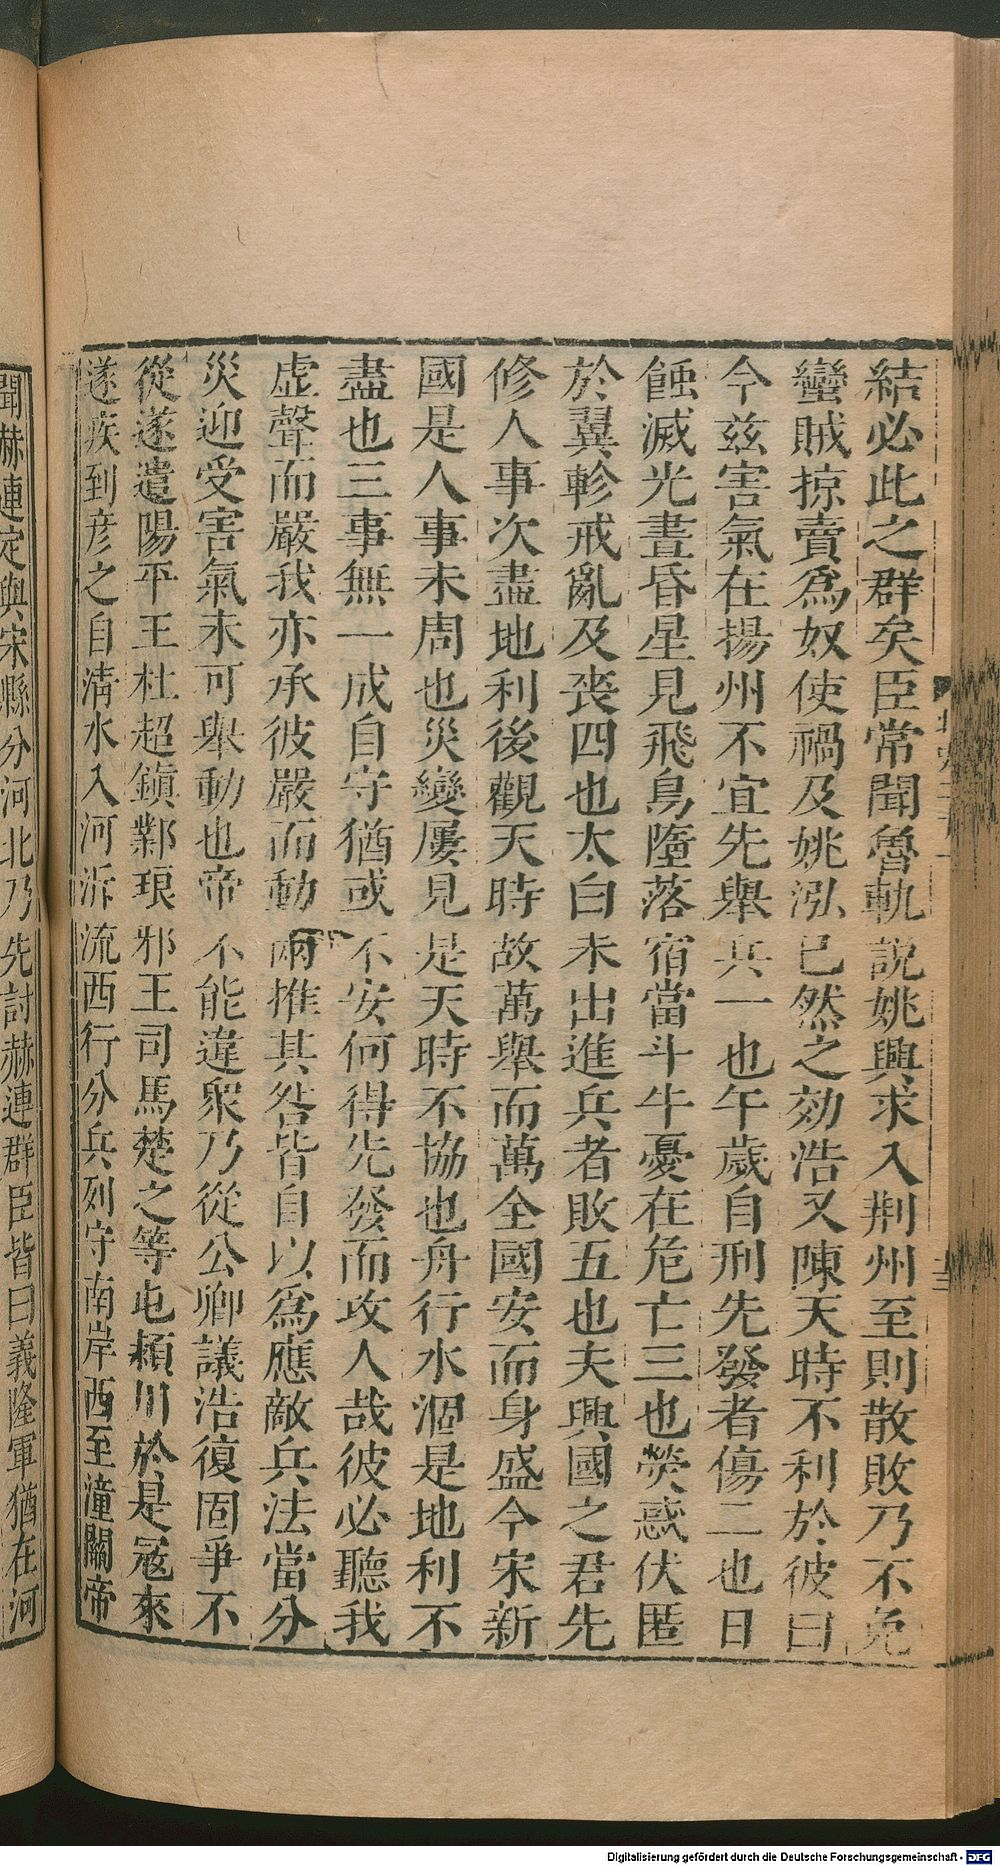 結必此之群矣臣常聞魯軌說姚興求入荆州至則散敗乃不免
蠻賊掠賣爲奴使禍及姚泓已然之効浩又陳天時不利於彼曰
今兹害氣在揚州不宜先舉兵一也午歲自刑先發者傷二也日
蝕滅光晝昏星見飛鳥墮落宿當斗牛憂在危亡三也熒惑伏匿
於翼軫戒亂及喪四也太白未出進兵者敗五也夫興國之君先
修人事次盡地利後觀天時故萬舉而萬全國安而身盛今宋新
國是人事未周也災變屢見是天時不協也舟行水涸是地利不
盡也三事無一成自守猶或不安何得先發而攻人哉彼必聽我
虛聲而嚴我亦承彼嚴而動兩推其咎皆自以爲應敵兵法當分
災迎受害氣未可舉動也帝不能違衆乃從公卿議浩復固爭不
從遂遣陽平王杜超鎮鄴琅邪王司馬楚之等屯頴川於是寇來
遂疾到彥之自清水入河泝流西行分兵列守南岸西至潼關帝
聞赫連定與宋縣分河北乃先討赫連群臣皆曰義隆軍猶在河
Digitalisierung gefördert durch die Deutsche Forschungsgemeinschaft - DFG